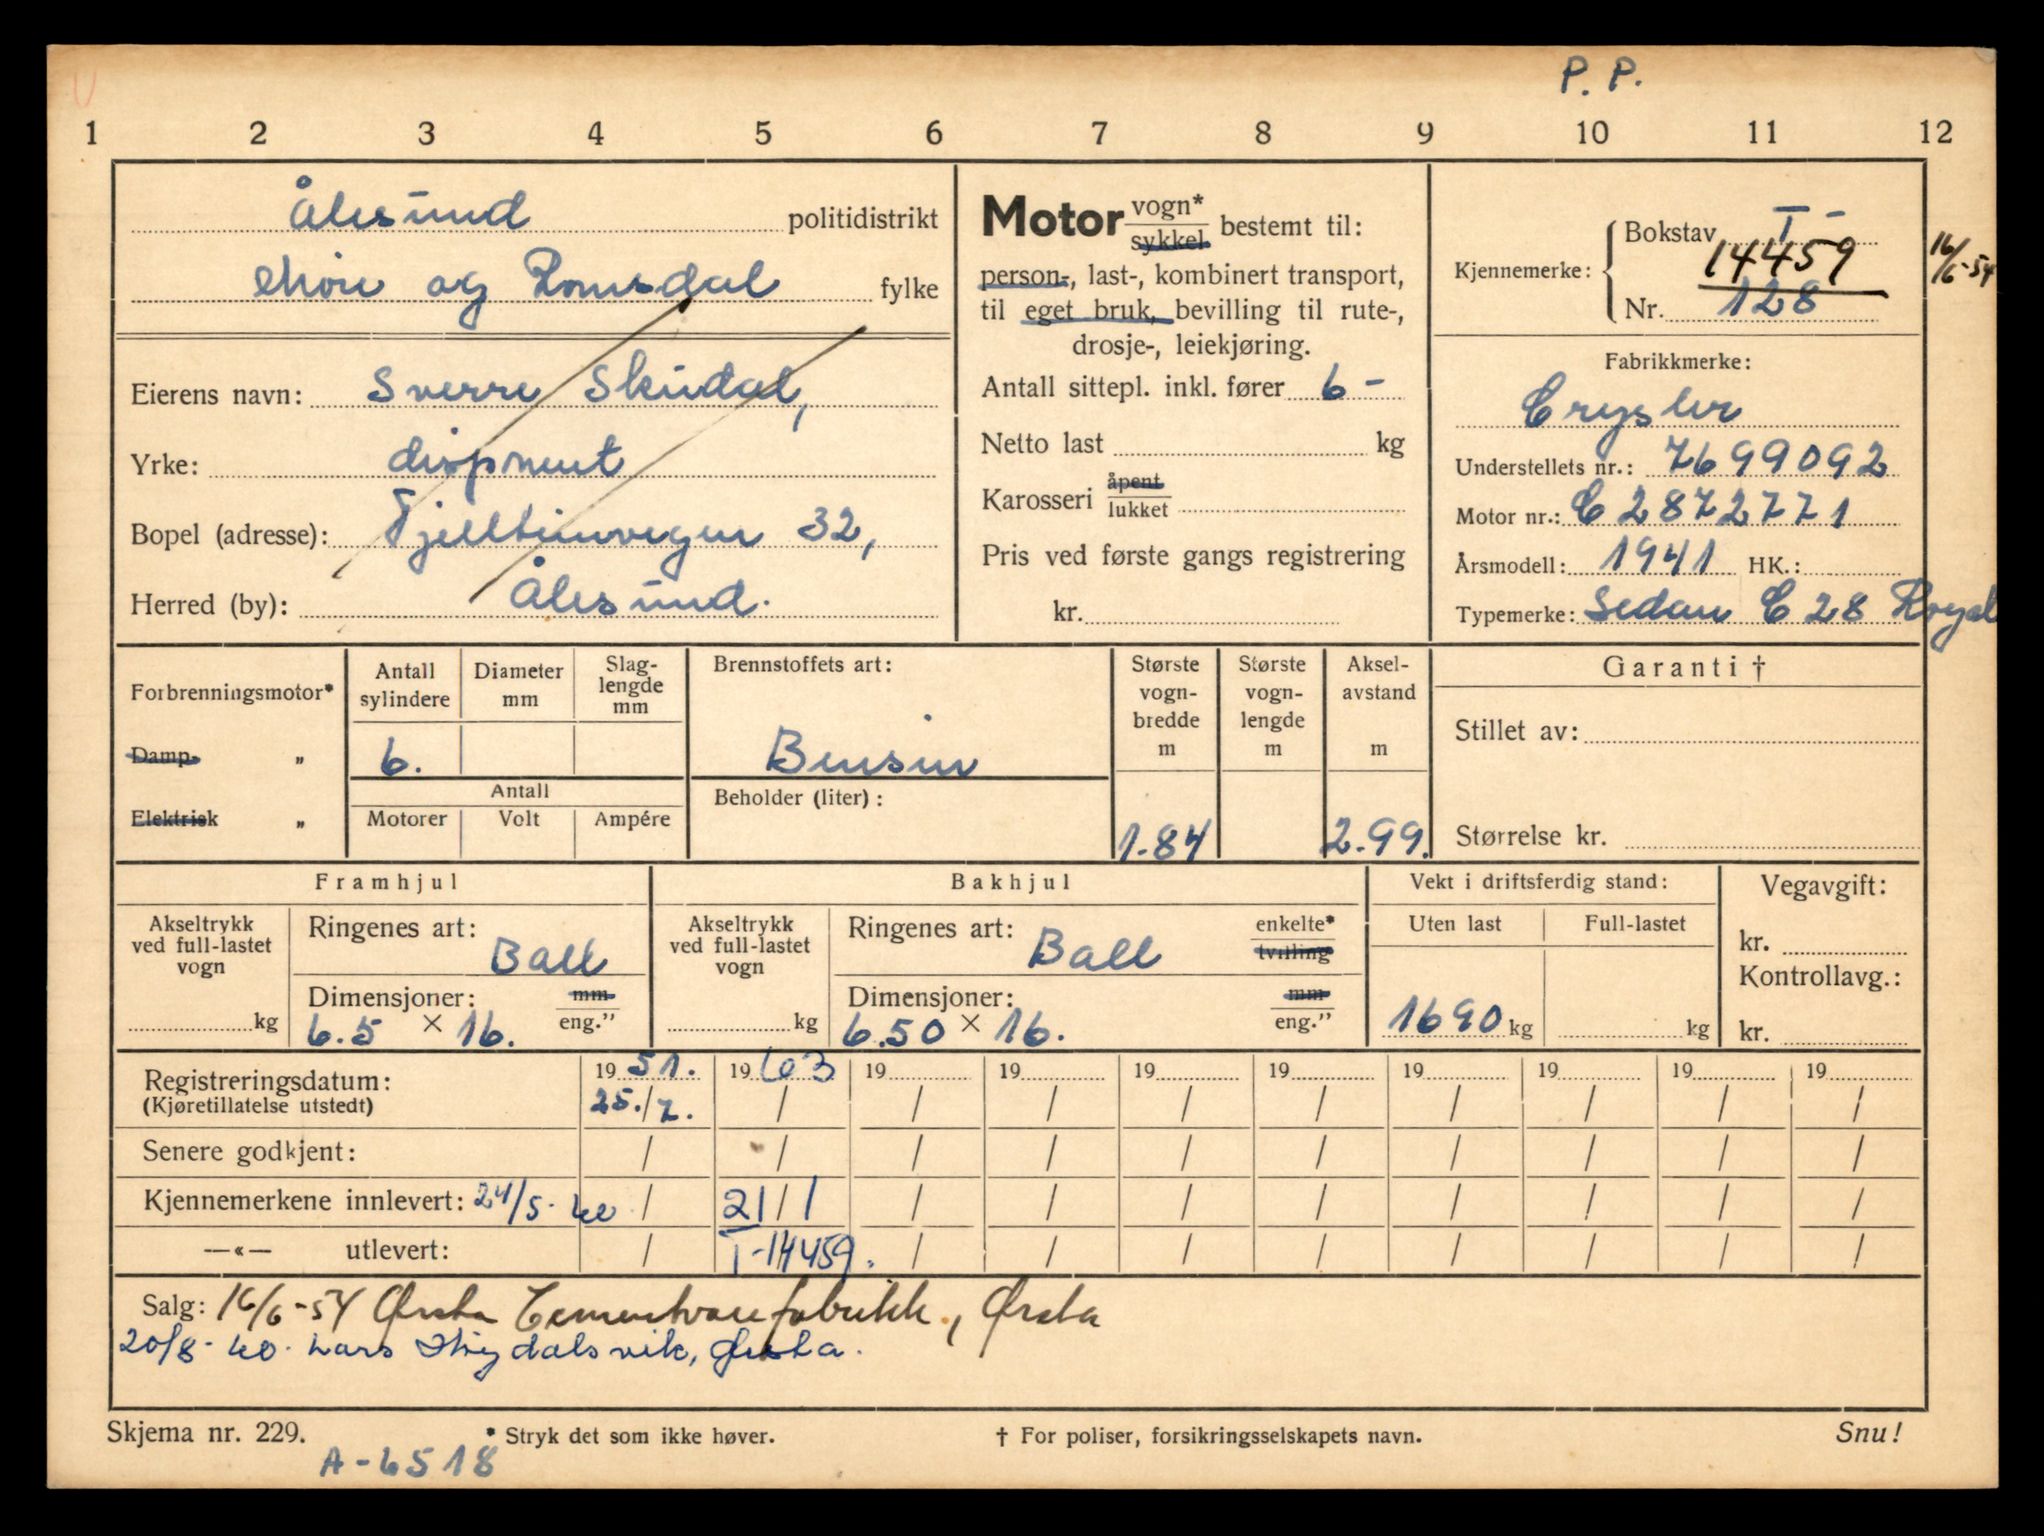 P. P.
1 2 3 4 5 6 7 8 9 10 11 12
Ålesund politidistrikt
Møre og Romsdal fylke
Eierens navn: Sverre Skudal,
Yrke: disponent
Bopel (adresse): Fjelltunvegen 32,
Herred (by): Ålesund.
Motor vogn* sykkel bestemt til:
person-, last-, kombinert transport,
til eget bruk, bevilling til rute-,
drosje-, leiekjøring.
Antall sittepl. inkl. fører 6 -
Netto last kg
Karosseri åpent lukket
Pris ved første gangs registrering
kr.
Kjennemerke: Bokstav T -
14459 16/6-54
Nr. 128
Fabrikkmerke:
Crysler
Understellets nr.: 7699092
Motor nr.: C 2872771
Årsmodell: 1941 HK.:
Typemerke: Sedan C 28 Royal
Forbrenningsmotor*
Damp- „
Elektrisk „
Antall sylindere
Diameter mm
Slag-lengde mm
6.
Antall
Motorer Volt Ampére
Brennstoffets art:
Bensin
Beholder (liter):
Største vogn-bredde m
1.84
Største vogn-lengde m
Aksel-avstand m
2.99.
Garanti †
Stillet av:
Størrelse kr.
Framhjul
Akseltrykk ved full-lastet vogn
kg
Ringenes art: Ball
Dimensjoner: mm eng.”
6.5 × 16.
Bakhjul
Akseltrykk ved full-lastet vogn
kg
Ringenes art: Ball enkelte* tvilling
Dimensjoner: mm eng.”
6.50 × 16.
Vekt i driftsferdig stand:
Uten last Full-lastet
1690 kg kg
Vegavgift:
kr.
Kontrollavg.:
kr.
Registreringsdatum: 19 51. 19 63 19 19 19 19 19 19 19 19
(Kjøretillatelse utstedt) 25./7. / / / / / / / / /
Senere godkjent: / / / / / / / / / /
Kjennemerkene innlevert: 24/5-60 / 21/1 / / / / / / / /
—«— utlevert: / T-14459. / / / / / / / /
Salg: 16/6-54 Ørsta Cementvarefabrikk, Ørsta
20/8-60. Lars Digdalsvik, Ørsta.
Skjema nr. 229. * Stryk det som ikke høver. † For poliser, forsikringsselskapets navn. Snu!
A-6518